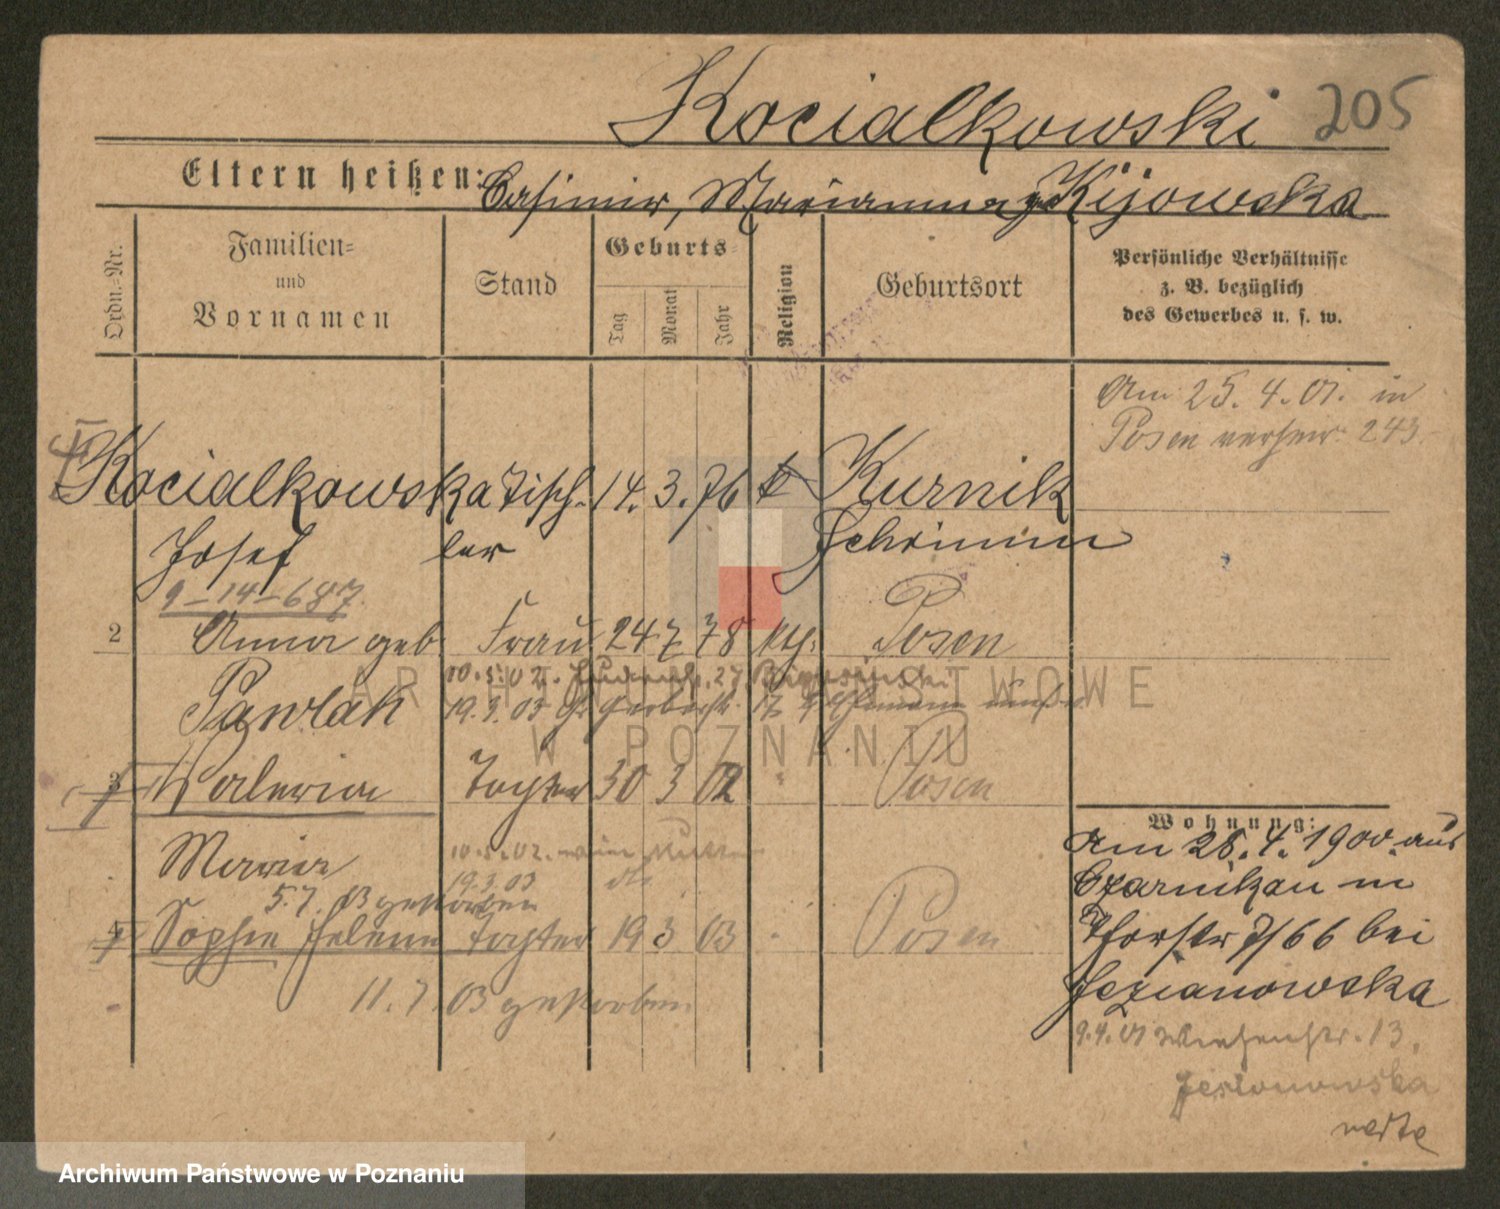 Kocialkowski 205
Eltern heißen: Casimir, Marianna geb Kijowska
Ordn.-Nr.
Familien-
und
Vornamen
Stand
Geburts-
Tag
Monat
Jahr
Religion
Geburtsort
Persönliche Verhältnisse
z. B. bezüglich
des Gewerbes u. s. w.
Am 25. 4. 01. in
Posen verheir. 243
Kocialkowska Tisch- 14. 3. 76 k Kurnik
Josef ler Schrimm
9-14-687
2 Anna geb. Frau 24 7 78 kth. Posen
Pawlak
10.5.02. 27
19.3.03 Gr Gerberstr. 17
3 Valeria Tochter 30 3 02 " Posen
Maria 10.5.02. wie Mutter
19.3.03 dto
5.7.03 gestorben
4 Sophie Helene Tochter 19 3 03 " Posen
11.7.03 gestorben
Wohnung:
Am 28. 4. 1900 aus
Czarnikau in
7/66 bei
Jezianowska
9.4.01 Wiesenstr. 13.
Jezionowska
verte
ARCHIWUM PAŃSTWOWE
W POZNANIU
Archiwum Państwowe w Poznaniu